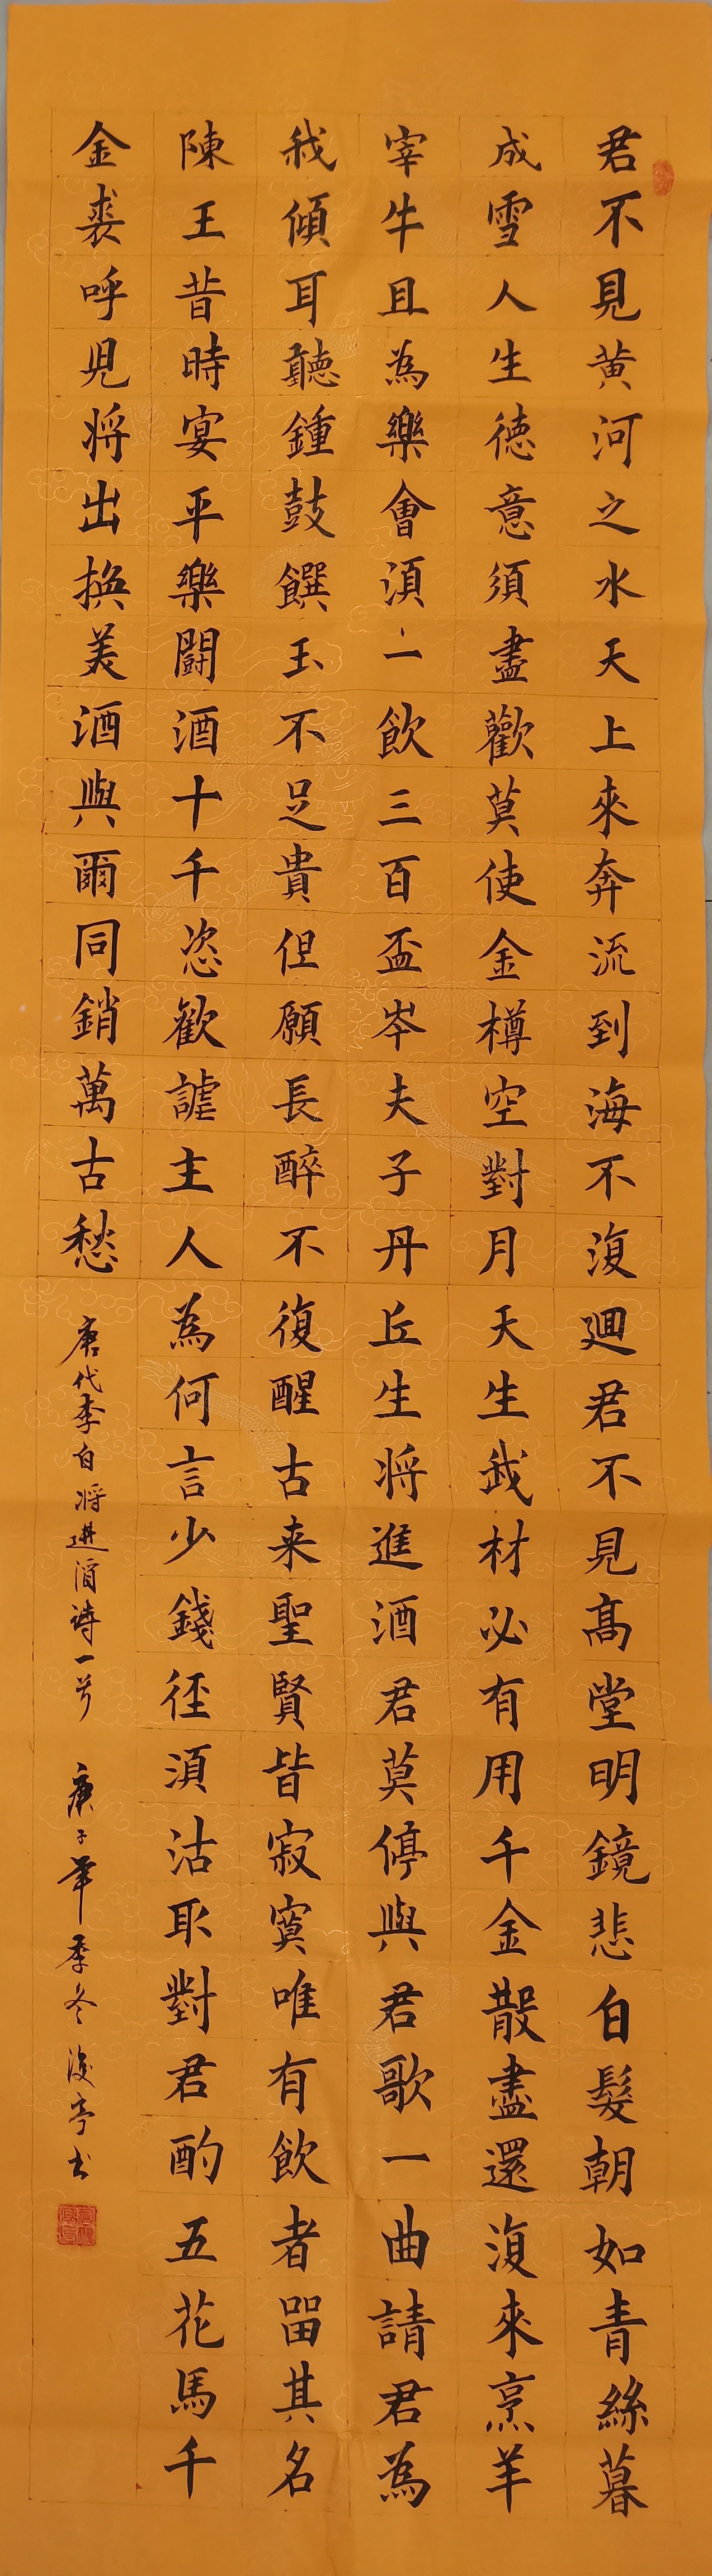 君不見黄河之水天上來奔流到海不復迴君不見髙堂明鏡悲白髮朝如青絲暮
成雪人生德意須盡歡莫使金樽空對月天生我材必有用千金散盡還復來烹羊
宰牛且為樂會須一飲三百盃岑夫子丹丘生将進酒君莫停與君歌一曲請君為
我傾耳聽鍾鼓饌玉不足貴但願長醉不復醒古来聖賢皆寂寞唯有飲者留其名
陳王昔時宴平樂鬪酒十千恣歡謔主人為何言少錢徑須沽取對君酌五花馬千
金裘呼児将出換美酒與爾同銷萬古愁
唐代李白将進酒詩一首 庚子年季冬 俊亭书